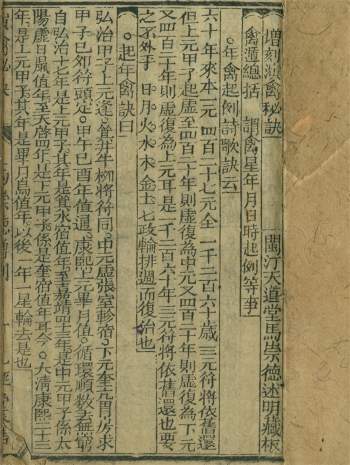 增刻演禽秘訣　閩汀大道堂馬崇德述明藏板
禽遁總括　謂禽星年月日時起例等事
○年禽起例詩歌訣云
六十年來本一元　四百二十七元全　一千二百六十歲　三元符將依舊還
但上元甲子起虛至四百二十年則虛復為中元又四百二十年則虛復為下元
又四百二十年則虛復為上元耳是一千二百六十年三元符將依舊還也要
之不外乎　日　月　火　水　木　金　土　七政輪排過而復始也
○起年禽訣曰
弘治甲子上元逢　並井牛柳將符同　中元虛張室軫宿　下元奎元胃房求
甲子已外符頭定　甲午己酉年值通　康熙上元畢月值　循環順數去無窮
自弘治十七年是上元甲子其年是 水宿值年至嘉靖四十三年是中元甲子係太
陽虛日鼠值年至天啓四年是下元甲子係是奎宿值年耳今　大清康熙二十三
年是上元甲子其年是畢月烏值年以後一年一星輪去是也